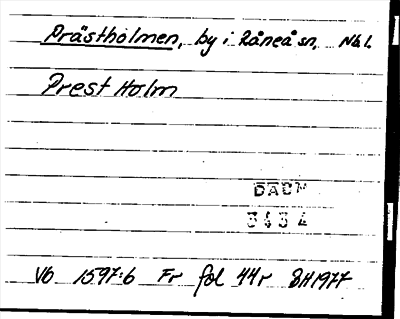 Prästholmen, by i Råneå sn, Nbl.
Prest Holm
DACM
3434
Vb 1597:6 Fr fol 44r SH1977